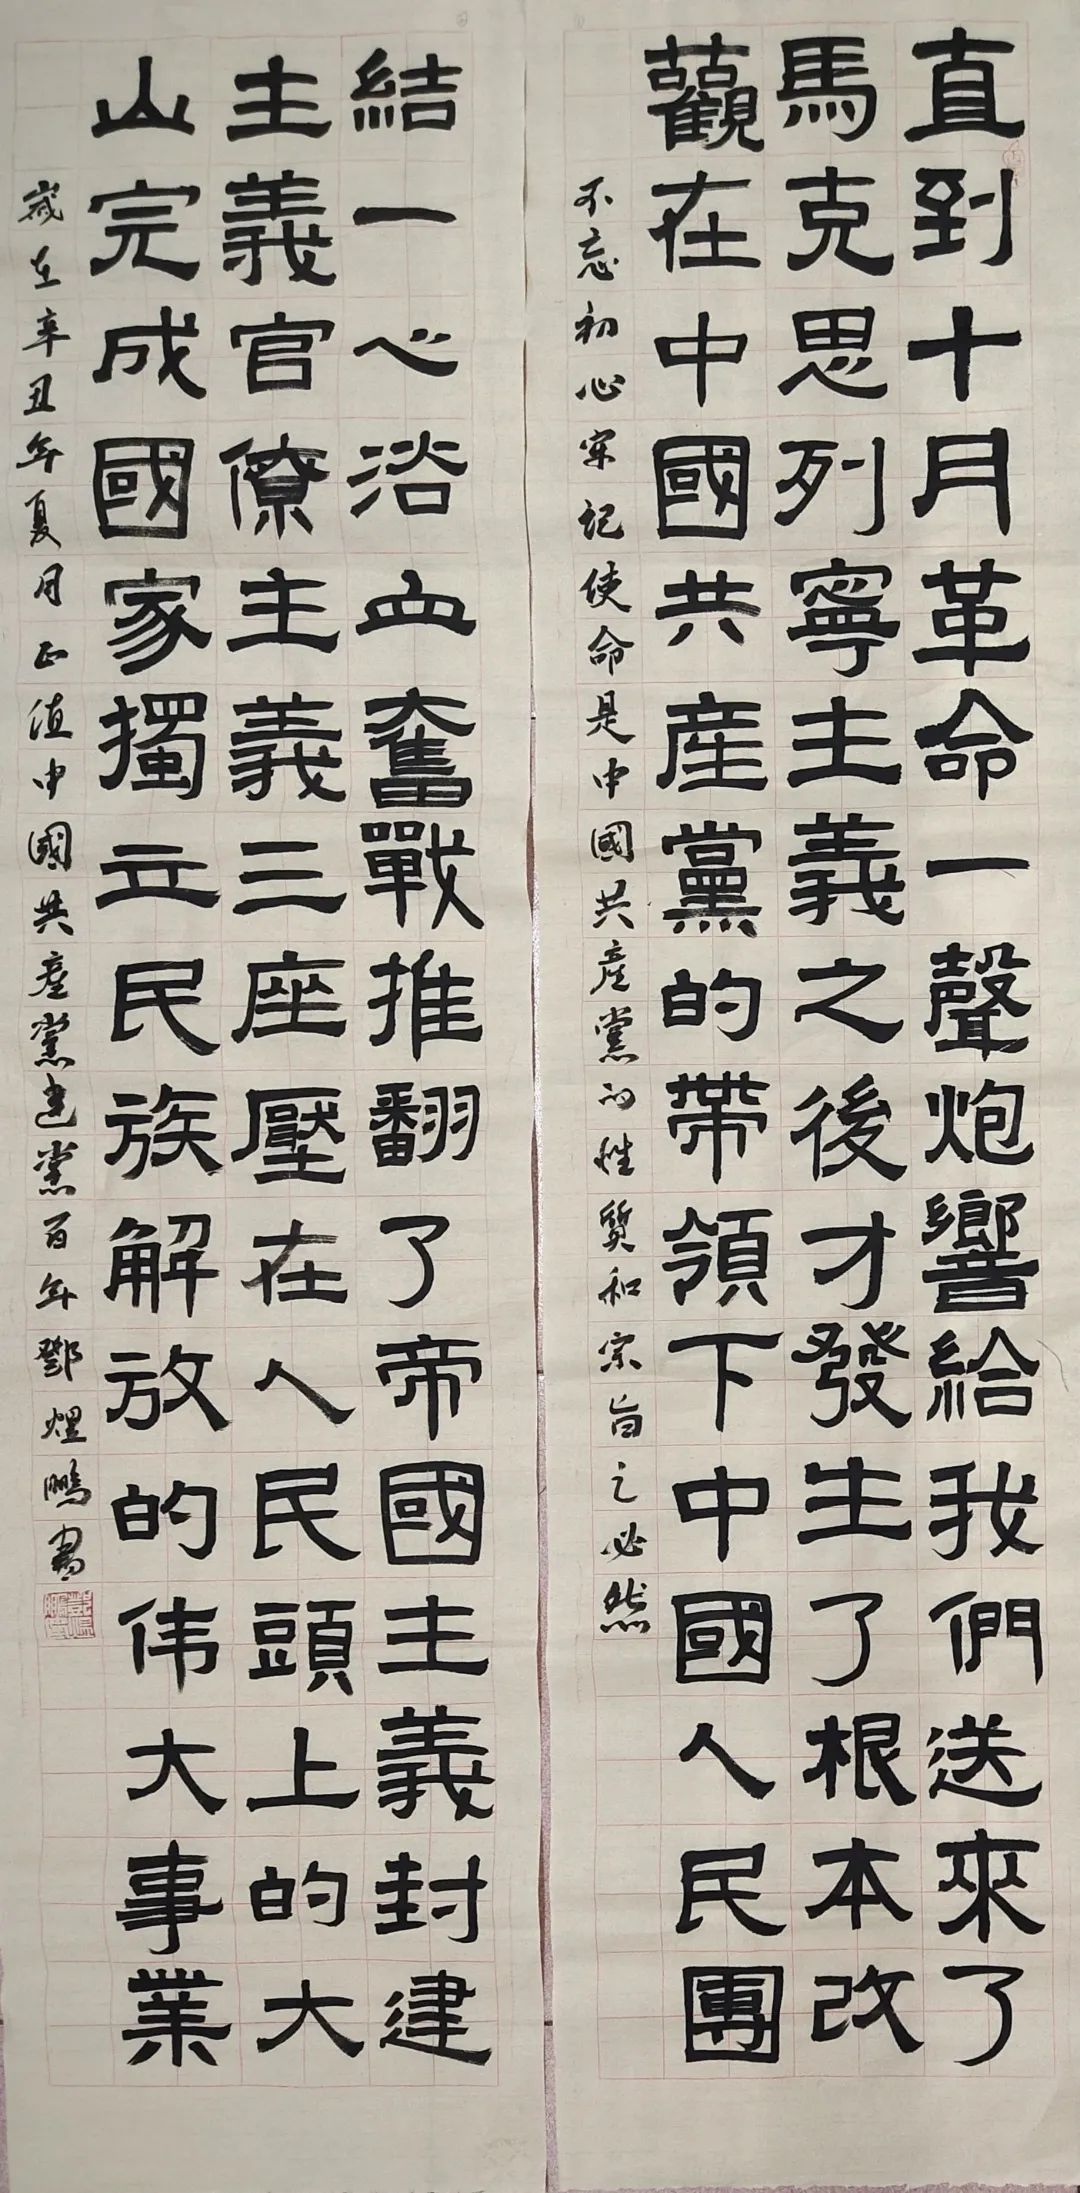 直到十月革命一聲炮響給我們送來了
馬克思列寧主義之後才發生了根本改
觀在中國共産黨的帶領下中國人民團
不忘初心牢記使命是中國共産黨的性質和宗旨之必然
結一心浴血奮戰推翻了帝國主義封建
主義官僚主義三座壓在人民頭上的大
山完成國家獨立民族解放的伟大事業
歲在辛丑年夏月正值中國共産黨建黨百年鄧鵬書